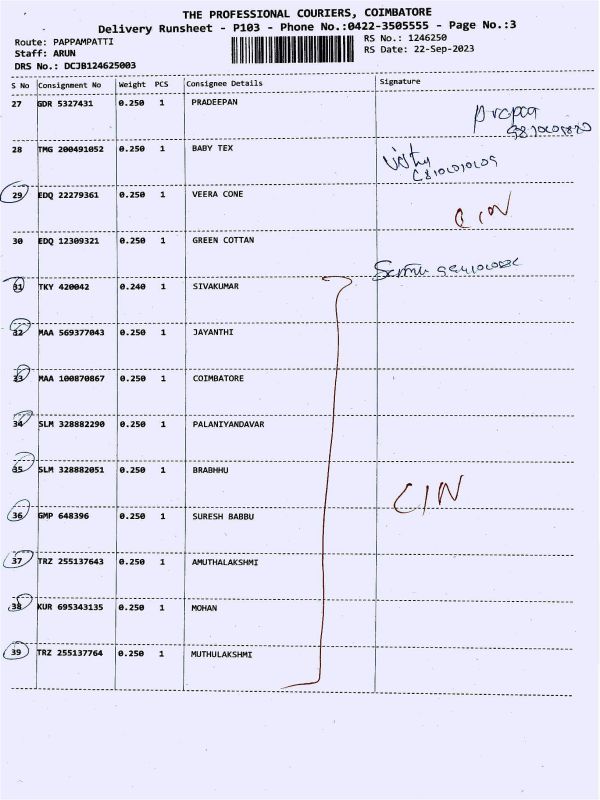 THE PROFESSIONAL COURIERS, COIMBATORE
Delivery Runsheet - P103 - Phone No.:0422-3505555 - Page No.:3
Route: PAPPAMPATTI
Staff: ARUN
DRS No.: DCJB124625003
RS No.: 1246250
RS Date: 22-Sep-2023
S No Consignment No Weight PCS Consignee Details Signature
27 GDR 5327431 0.250 1 PRADEEPAN
28 TMG 200491052 0.250 1 BABY TEX
29 EDQ 22279361 0.250 1 VEERA CONE
CIN
30 EDQ 12309321 0.250 1 GREEN COTTAN
31 TKY 420042 0.240 1 SIVAKUMAR
32 MAA 569377043 0.250 1 JAYANTHI
33 MAA 100870867 0.250 1 COIMBATORE
34 SLM 328882290 0.250 1 PALANIYANDAVAR
35 SLM 328882051 0.250 1 BRABHHU
CIN
36 GMP 648396 0.250 1 SURESH BABBU
37 TRZ 255137643 0.250 1 AMUTHALAKSHMI
38 KUR 695343135 0.250 1 MOHAN
39 TRZ 255137764 0.250 1 MUTHULAKSHMI